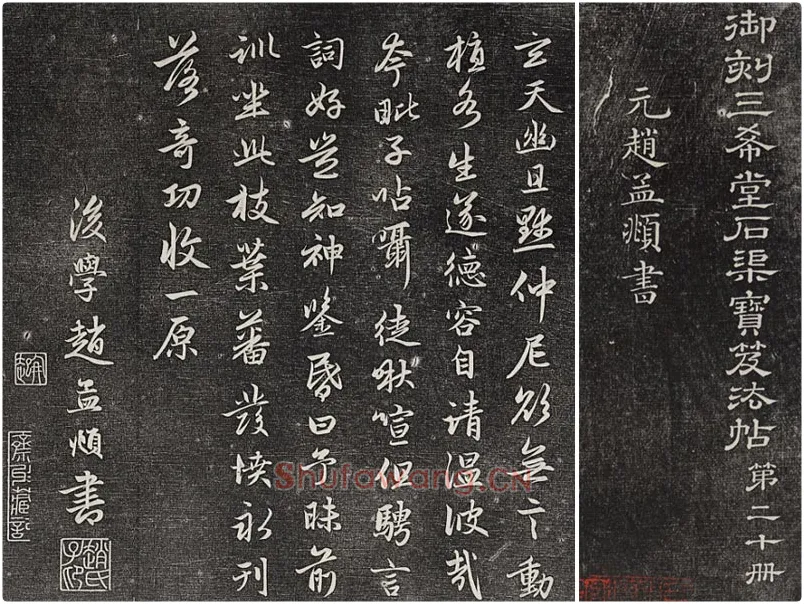 御刻三希堂石渠寶笈法帖 第二十册
元趙孟頫書
玄天幽且默仲尼欲無言動
植各生遂德容自清溫彼哉
夸毗子呫囁徒啾喧但騁言
詞好豈知神鑒昏曰予昧前
訓坐此枝葉蕃發憤永刊
落奇功收一原
後學趙孟頫書
Shufawang.CN